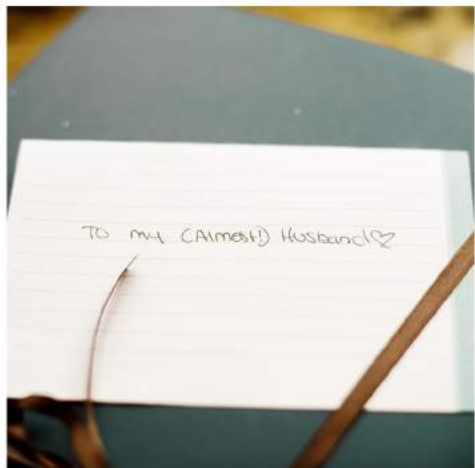 To my (Almost!) Husband♡